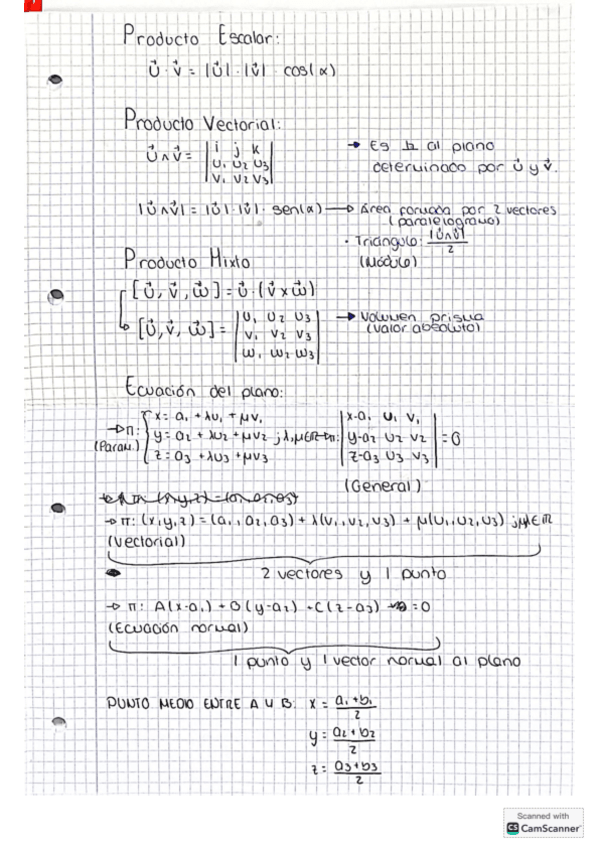 Producto Escalar:
U⃗ · V⃗ = |U⃗| · |V⃗| · cos(α)
Producto Vectorial:
U⃗ ∧ V⃗ = | i j k |
| U₁ U₂ U₃ |
| V₁ V₂ V₃ |
→ Es ⊥ al plano
determinado por U⃗ y V⃗.
|U⃗∧V⃗| = |U⃗| · |V⃗| · sen(α) → Área formada por 2 vectores
(paralelogramo)
· Triángulo: |U⃗∧V⃗| / 2
(Módulo)
Producto Mixto
[U⃗, V⃗, W⃗] = U⃗ · (V⃗ x W⃗)
↳ [U⃗, V⃗, W⃗] = | U₁ U₂ U₃ |
| V₁ V₂ V₃ |
| W₁ W₂ W₃ |
→ Volumen prisma
(valor absoluto)
Ecuación del plano:
→ π: { x = a₁ + λU₁ + μV₁
(Param.) { y = a₂ + λU₂ + μV₂ ; λ,μ∈ℝ → π:
{ z = a₃ + λU₃ + μV₃
| x-a₁ U₁ V₁ |
| y-a₂ U₂ V₂ | = 0
| z-a₃ U₃ V₃ |
(General)
→ π: (x,y,z) = (a₁, a₂, a₃) + λ(V₁, V₂, V₃) + μ(U₁, U₂, U₃)
(Vectorial)
2 vectores y 1 punto
→ π: A(x-a₁) + B(y-a₂) + C(z-a₃) = 0
(Ecuación normal)
1 punto y 1 vector normal al plano
PUNTO MEDIO ENTRE A y B: x = a₁+b₁ / 2
y = a₂+b₂ / 2
z = a₃+b₃ / 2
Scanned with
CS CamScanner